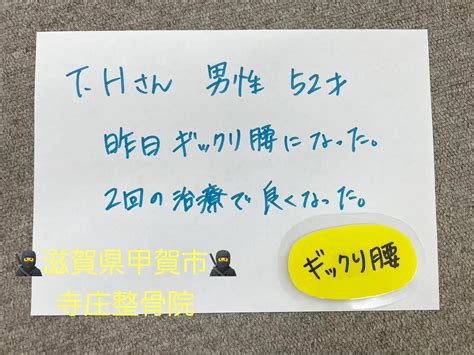 T.Hさん 男性 52才
昨日ギックリ腰になった。
2回の治療で良くなった。
🥷滋賀県甲賀市🥷
寺庄整骨院
ギックリ腰